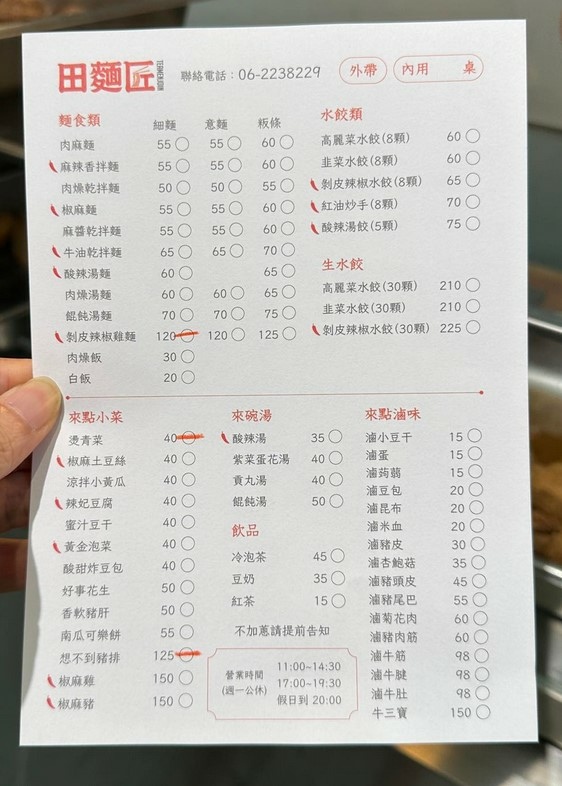 田麵匠
聯絡電話：06-2238229
外帶
內用 桌
麵食類 細麵 意麵 粄條
肉麻麵 55 55 60
麻辣香拌麵 55 55 60
肉燥乾拌麵 50 50 55
椒麻麵 55 55 60
麻醬乾拌麵 55 55 60
牛油乾拌麵 65 65 70
酸辣湯麵 60 65
肉燥湯麵 60 60 65
餛飩湯麵 70 70 75
剝皮辣椒雞麵 120 120 125
肉燥飯 30
白飯 20
水餃類
高麗菜水餃(8顆) 60
韭菜水餃(8顆) 60
剝皮辣椒水餃(8顆) 65
紅油炒手(8顆) 70
酸辣湯餃(5顆) 75
生水餃
高麗菜水餃(30顆) 210
韭菜水餃(30顆) 210
剝皮辣椒水餃(30顆) 225
來點小菜
燙青菜 40
椒麻土豆絲 40
涼拌小黃瓜 40
辣妃豆腐 40
蜜汁豆干 40
黃金泡菜 40
酸甜炸豆包 40
好事花生 50
香軟豬肝 50
南瓜可樂餅 55
想不到豬排 125
椒麻雞 150
椒麻豬 150
來碗湯
酸辣湯 35
紫菜蛋花湯 40
貢丸湯 40
餛飩湯 50
飲品
冷泡茶 45
豆奶 35
紅茶 15
不加蔥請提前告知
營業時間
(週一公休)
11:00~14:30
17:00~19:30
假日到 20:00
來點滷味
滷小豆干 15
滷蛋 15
滷蒟蒻 15
滷豆包 20
滷昆布 20
滷米血 20
滷豬皮 30
滷杏鮑菇 35
滷豬頭皮 45
滷豬尾巴 55
滷菊花肉 60
滷豬肉筋 60
滷牛筋 98
滷牛腱 98
滷牛肚 98
牛三寶 150